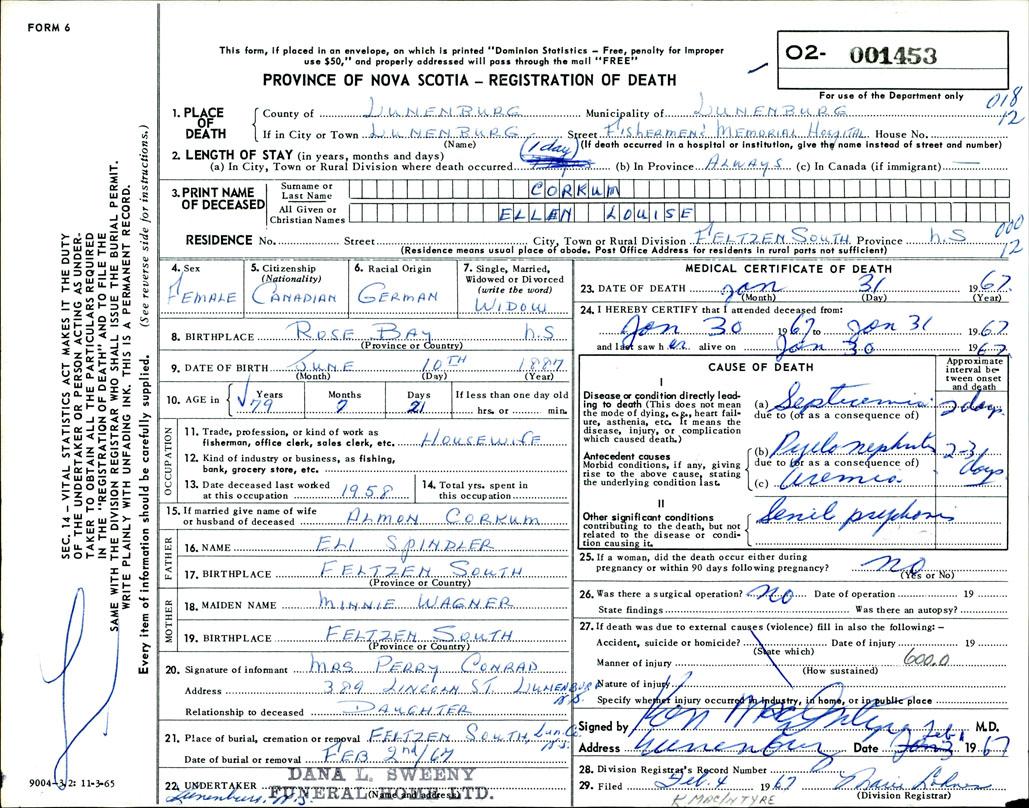 FORM 6
This form, if placed in an envelope, on which is printed "Dominion Statistics – Free, penalty for improper
use $50," and properly addressed will pass through the mail "FREE"
PROVINCE OF NOVA SCOTIA – REGISTRATION OF DEATH
O2- 001453
For use of the Department only
018
12
1. PLACE OF DEATH
County of LUNENBURG Municipality of LUNENBURG
If in City or Town LUNENBURG Street FISHERMENS MEMORIAL HOSPITAL House No.
(Name) (If death occurred in a hospital or institution, give the name instead of street and number)
2. LENGTH OF STAY (in years, months and days) (1 day)
(a) In City, Town or Rural Division where death occurred (b) In Province ALWAYS (c) In Canada (if immigrant) —
3. PRINT NAME OF DECEASED
Surname or Last Name CORKUM
All Given or Christian Names ELLEN LOUISE
000
12
RESIDENCE No. Street City, Town or Rural Division FELTZEN SOUTH Province N.S
(Residence means usual place of abode. Post Office Address for residents in rural parts not sufficient)
4. Sex FEMALE
5. Citizenship (Nationality) CANADIAN
6. Racial Origin GERMAN
7. Single, Married, Widowed or Divorced (write the word) WIDOW
8. BIRTHPLACE ROSE BAY N.S
(Province or Country)
9. DATE OF BIRTH JUNE 10TH 1887
(Month) (Day) (Year)
10. AGE in Years 79 Months 7 Days 21 If less than one day old hrs. or min.
OCCUPATION
11. Trade, profession, or kind of work as fisherman, office clerk, sales clerk, etc. HOUSEWIFE
12. Kind of industry or business, as fishing, bank, grocery store, etc.
13. Date deceased last worked at this occupation 1958
14. Total yrs. spent in this occupation
15. If married give name of wife or husband of deceased ALMON CORKUM
FATHER
16. NAME ELI SPINDLER
17. BIRTHPLACE FELTZEN SOUTH
(Province or Country)
MOTHER
18. MAIDEN NAME MINNIE WAGNER
19. BIRTHPLACE FELTZEN SOUTH
(Province or Country)
20. Signature of informant MRS PERRY CONRAD
Address 389 LINCOLN ST. LUNENBURG N.S.
Relationship to deceased DAUGHTER
21. Place of burial, cremation or removal FELTZEN SOUTH, Lun. Co. N.S.
Date of burial or removal FEB 2nd/67
DANA L. SWEENY
22. UNDERTAKER FUNERAL HOME LTD.
(Name and address)
Lunenburg, N.S.
9004-3/2: 11-3-65
MEDICAL CERTIFICATE OF DEATH
23. DATE OF DEATH Jan 31 1967.
(Month) (Day) (Year)
24. I HEREBY CERTIFY that I attended deceased from:
Jan 30 1967 to Jan 31 1967.
and last saw her alive on Jan 30 1967.
CAUSE OF DEATH
Approximate interval between onset and death
I
Disease or condition directly leading to death (This does not mean the mode of dying, e.g., heart failure, asthenia, etc. It means the disease, injury, or complication which caused death.)
(a) Septicemia 2 days.
due to (or as a consequence of)
Antecedent causes
Morbid conditions, if any, giving rise to the above cause, stating the underlying condition last.
(b) Pyelo nephritis 2-3 days
due to (or as a consequence of)
(c) Uremia.
II
Other significant conditions contributing to the death, but not related to the disease or condition causing it.
Senil
25. If a woman, did the death occur either during pregnancy or within 90 days following pregnancy? no
(Yes or No)
26. Was there a surgical operation? no Date of operation 19
State findings Was there an autopsy?
27. If death was due to external causes (violence) fill in also the following: –
Accident, suicide or homicide? Date of injury 19
(State which)
Manner of injury 600.0
(How sustained)
Nature of injury
Specify whether injury occurred in industry, in home, or in public place
Signed by M.D.
Address Lunenburg Date Feb 1 1967
28. Division Registrar's Record Number 2
29. Filed Feb 4 1967
(Division Registrar)
K MACINTYRE
SEC. 14 – VITAL STATISTICS ACT MAKES IT THE DUTY
OF THE UNDERTAKER OR PERSON ACTING AS UNDER-
TAKER TO OBTAIN ALL THE PARTICULARS REQUIRED
IN THE "REGISTRATION OF DEATH" AND TO FILE THE
SAME WITH THE DIVISION REGISTRAR WHO SHALL ISSUE THE BURIAL PERMIT.
WRITE PLAINLY WITH UNFADING INK. THIS IS A PERMANENT RECORD.
Every item of information should be carefully supplied. (See reverse side for instructions.)